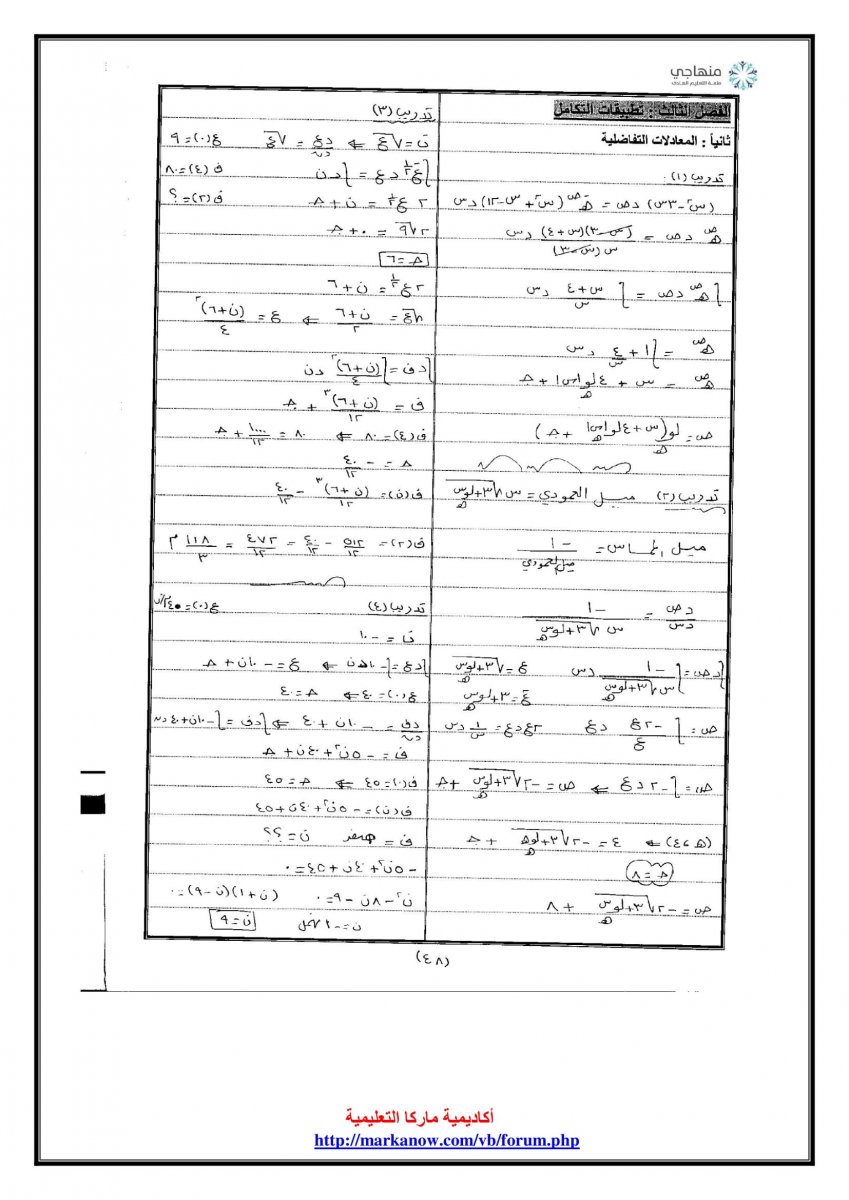 منهاجي
منصة التعليم الهادف
الفصل الثالث : تطبيقات التكامل
ثانياً : المعادلات التفاضلية
تدريب (١) :
(س² - ٣س) دص = هـ^-ص (س² + س - ١٢) دس
هـ^ص دص = (س - ٣)(س + ٤) / س(س - ٣) دس
∫ هـ^ص دص = ∫ (س + ٤)/س دس
هـ^ص = ∫ ١ + ٤/س دس
هـ^ص = س + ٤ لو_هـ |س| + جـ
ص = لو_هـ (س + ٤ لو_هـ |س| + جـ)
تدريب (٢) ميل العمودي = س √(٣ + لو_هـ س)
ميل المماس = -١ / ميل العمودي
دص/دس = -١ / س √(٣ + لو_هـ س)
∫ دص = ∫ -١ / س √(٣ + لو_هـ س) دس ع = √(٣ + لو_هـ س)
ع² = ٣ + لو_هـ س
ص = ∫ -٢ع/ع دع ٢ع دع = ١/س دس
ص = ∫ -٢ دع ⇐ ص = -٢ √(٣ + لو_هـ س) + جـ
(هـ ، ٤) ⇐ ٤ = -٢ √(٣ + لو_هـ هـ) + جـ
جـ = ٨
ص = -٢ √(٣ + لو_هـ س) + ٨
تدريب (٣)
ت = √ع ⇐ دع/دن = √ع ع(٠) = ٩
∫ ع^-½ دع = ∫ دن ف(٤) = ٨٠
٢ ع^½ = ن + جـ ف(٢) = ؟
٢√٩ = ٠ + جـ
جـ = ٦
٢ ع^½ = ن + ٦
√ع = (ن + ٦)/٢ ⇐ ع = (ن + ٦)²/٤
∫ دف = ∫ (ن + ٦)²/٤ دن
ف = (ن + ٦)³/١٢ + جـ
ف(٤) = ٨٠ ⇐ ٨٠ = ١٠٠٠/١٢ + جـ
جـ = -٤٠/١٢
ف(ن) = (ن + ٦)³/١٢ - ٤٠/١٢
ف(٢) = ٥١٢/١٢ - ٤٠/١٢ = ٤٧٢/١٢ = ١١٨/٣ م
تدريب (٤) ع(٠) = ٤٠ م/ث
ت = -١٠
∫ دع = ∫ -١٠ دن ⇐ ع = -١٠ن + جـ
ع(٠) = ٤٠ ⇐ جـ = ٤٠
دف/دن = -١٠ن + ٤٠ ⇐ ∫ دف = ∫ -١٠ن + ٤٠ دن
ف = -٥ن² + ٤٠ن + جـ
ف(٠) = ٤٥ ⇐ جـ = ٤٥
ف(ن) = -٥ن² + ٤٠ن + ٤٥
ف = صفر ن = ؟؟
-٥ن² + ٤٠ن + ٤٥ = ٠
ن² - ٨ن - ٩ = ٠ (ن + ١)(ن - ٩) = ٠
ن = -١ تهمل ن = ٩
(٤٨)
أكاديمية ماركا التعليمية
http://markanow.com/vb/forum.php